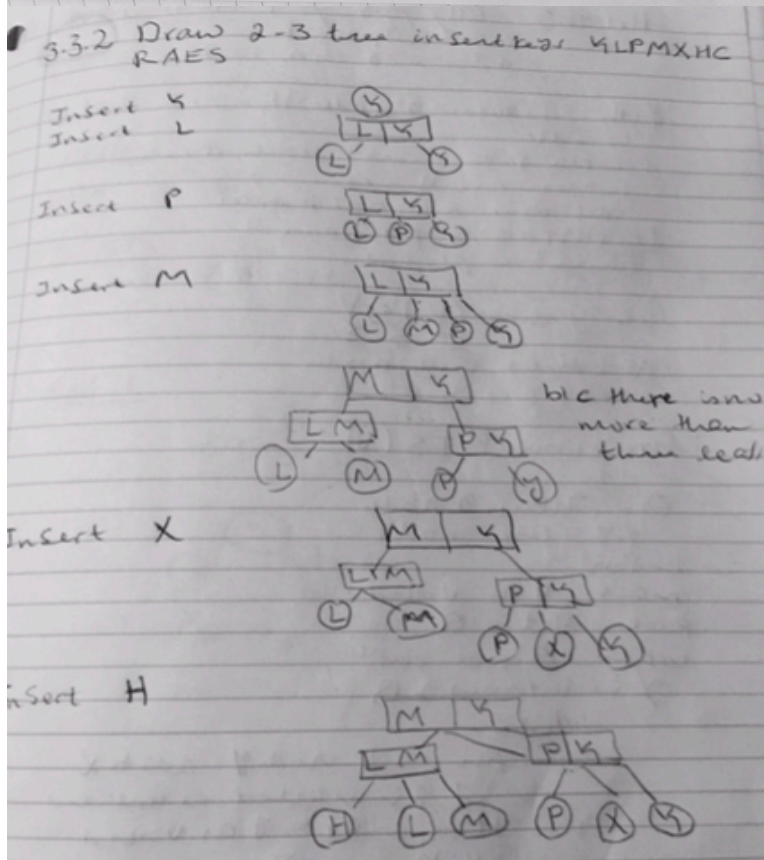 3.3.2 Draw 2-3 tree insert keys YLPMXHC
RAES
Insert Y
Y
Insert L
L Y
L Y
Insert P
L Y
L P Y
Insert M
L Y
L M P Y
M Y
b/c there is no
L M P Y
more then
three
L M P Y
Insert X
M Y
L M P Y
L M P X Y
nsert H
M Y
L M P Y
H L M P X Y